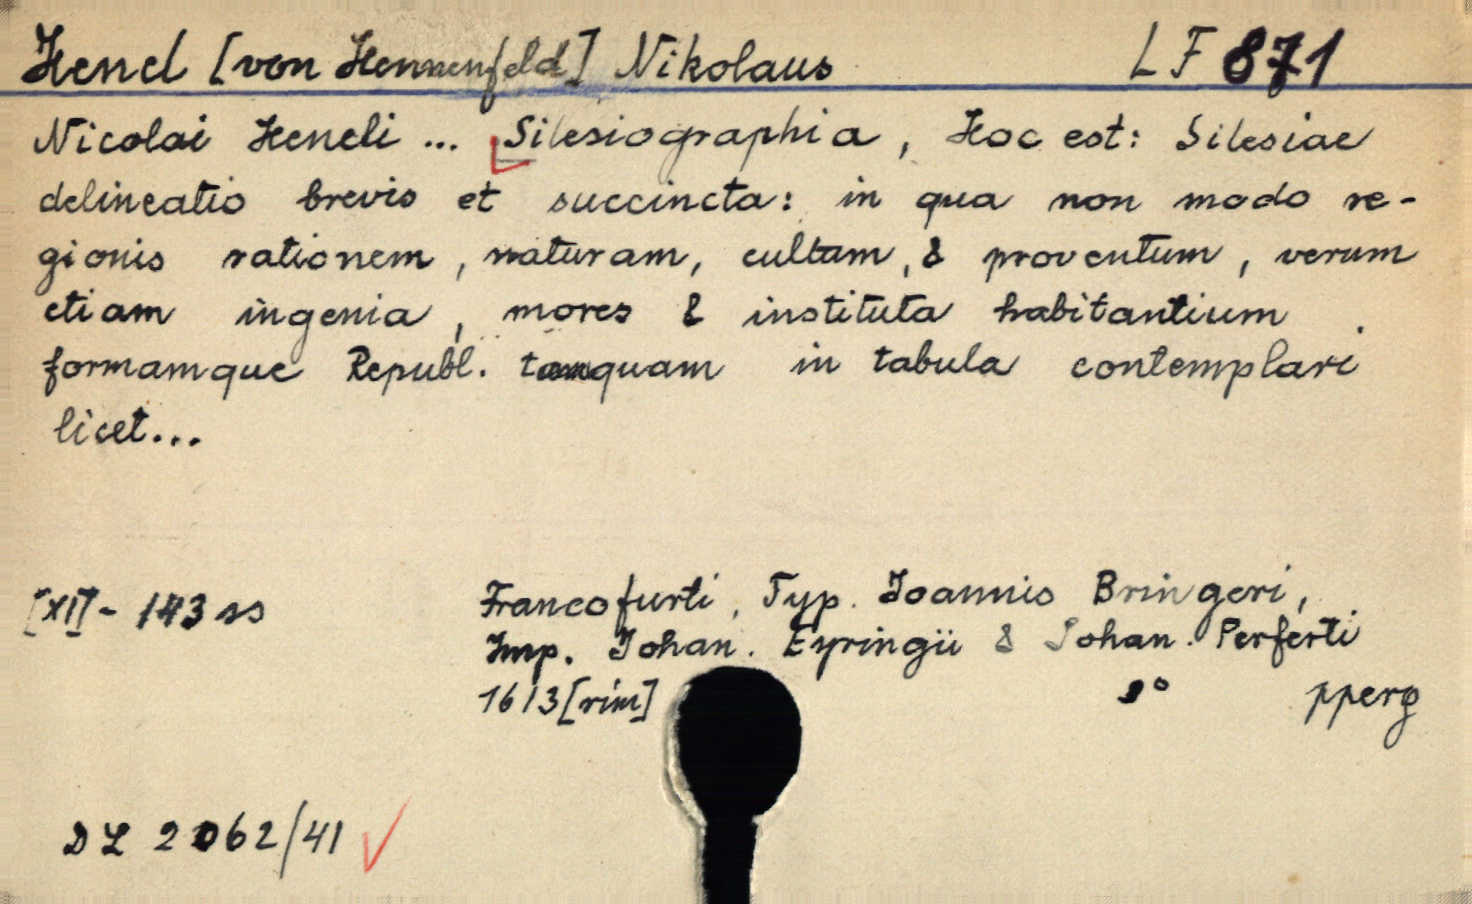 Henel [von Hennenfeld] Nikolaus LF 871
Nicolai Heneli ... Silesiographia, Hoc est: Silesiae
delineatio brevis et succincta: in qua non modo re-
gionis rationem, naturam, cultum, & proventum, verum
etiam ingenia, mores & instituta habitantium
formamque Republ. tamquam in tabula contemplari
licet...
[XI]- 143 ss Francofurti, Typ. Joannis Bringeri,
Imp. Johan. Eyringii & Johan. Perferti
1613 [rím] pperg
DL 2062/41